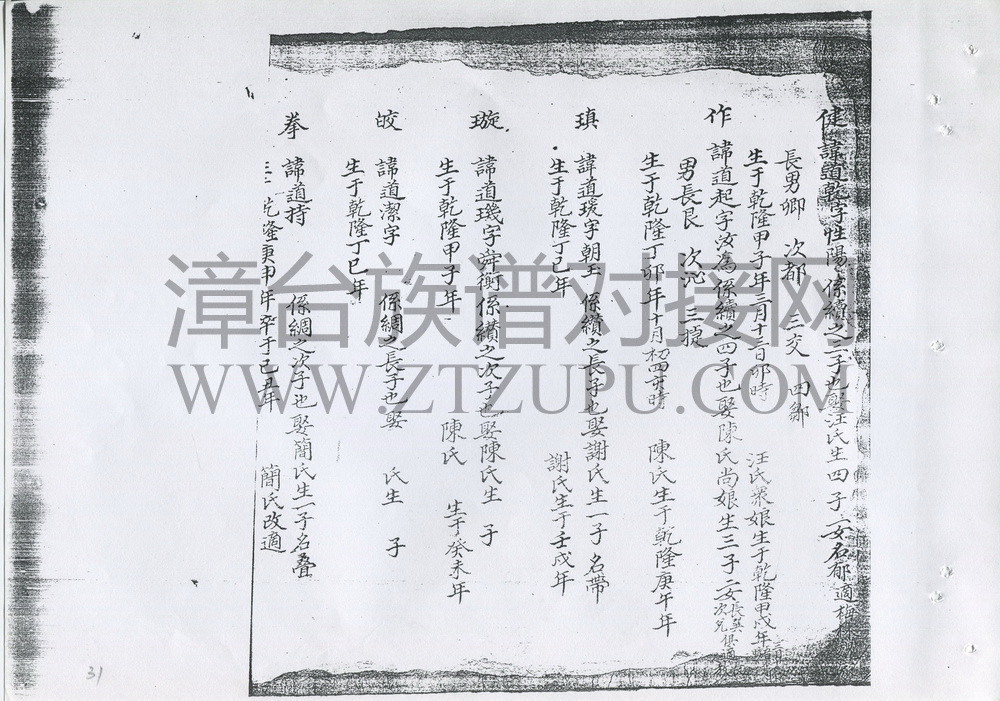 健 諱道乾字性陽 係續之三子也娶汪氏生四子一女名郁適梅林
長男卿 次都 三交 四鄉
生于乾隆甲子年三月十三日卯時 汪氏衆娘生于乾隆甲戌年
作 諱道起字汝為係續之四子也娶陳氏尚娘生三子二女長 次
男長艮 次 三捷
生于乾隆丁卯年十月初四 時 陳氏生于乾隆庚午年
瑱 諱道琓字朝玉 係纘之長子也娶謝氏生一子名帶
生于乾隆丁巳年 謝氏生于壬戌年
璇 諱道璣字舜衡係纘之次子也娶陳氏生 子
生于乾隆甲子年 陳氏 生于癸未年
皎 諱道潔字 係綢之長子也娶 氏生 子
生于乾隆丁巳年
拳 諱道持 係綢之次子也娶簡氏生一子名叠
生于乾隆庚申年卒于己丑年 簡氏改適
漳台族谱对接网
WWW.ZTZUPU.COM
31